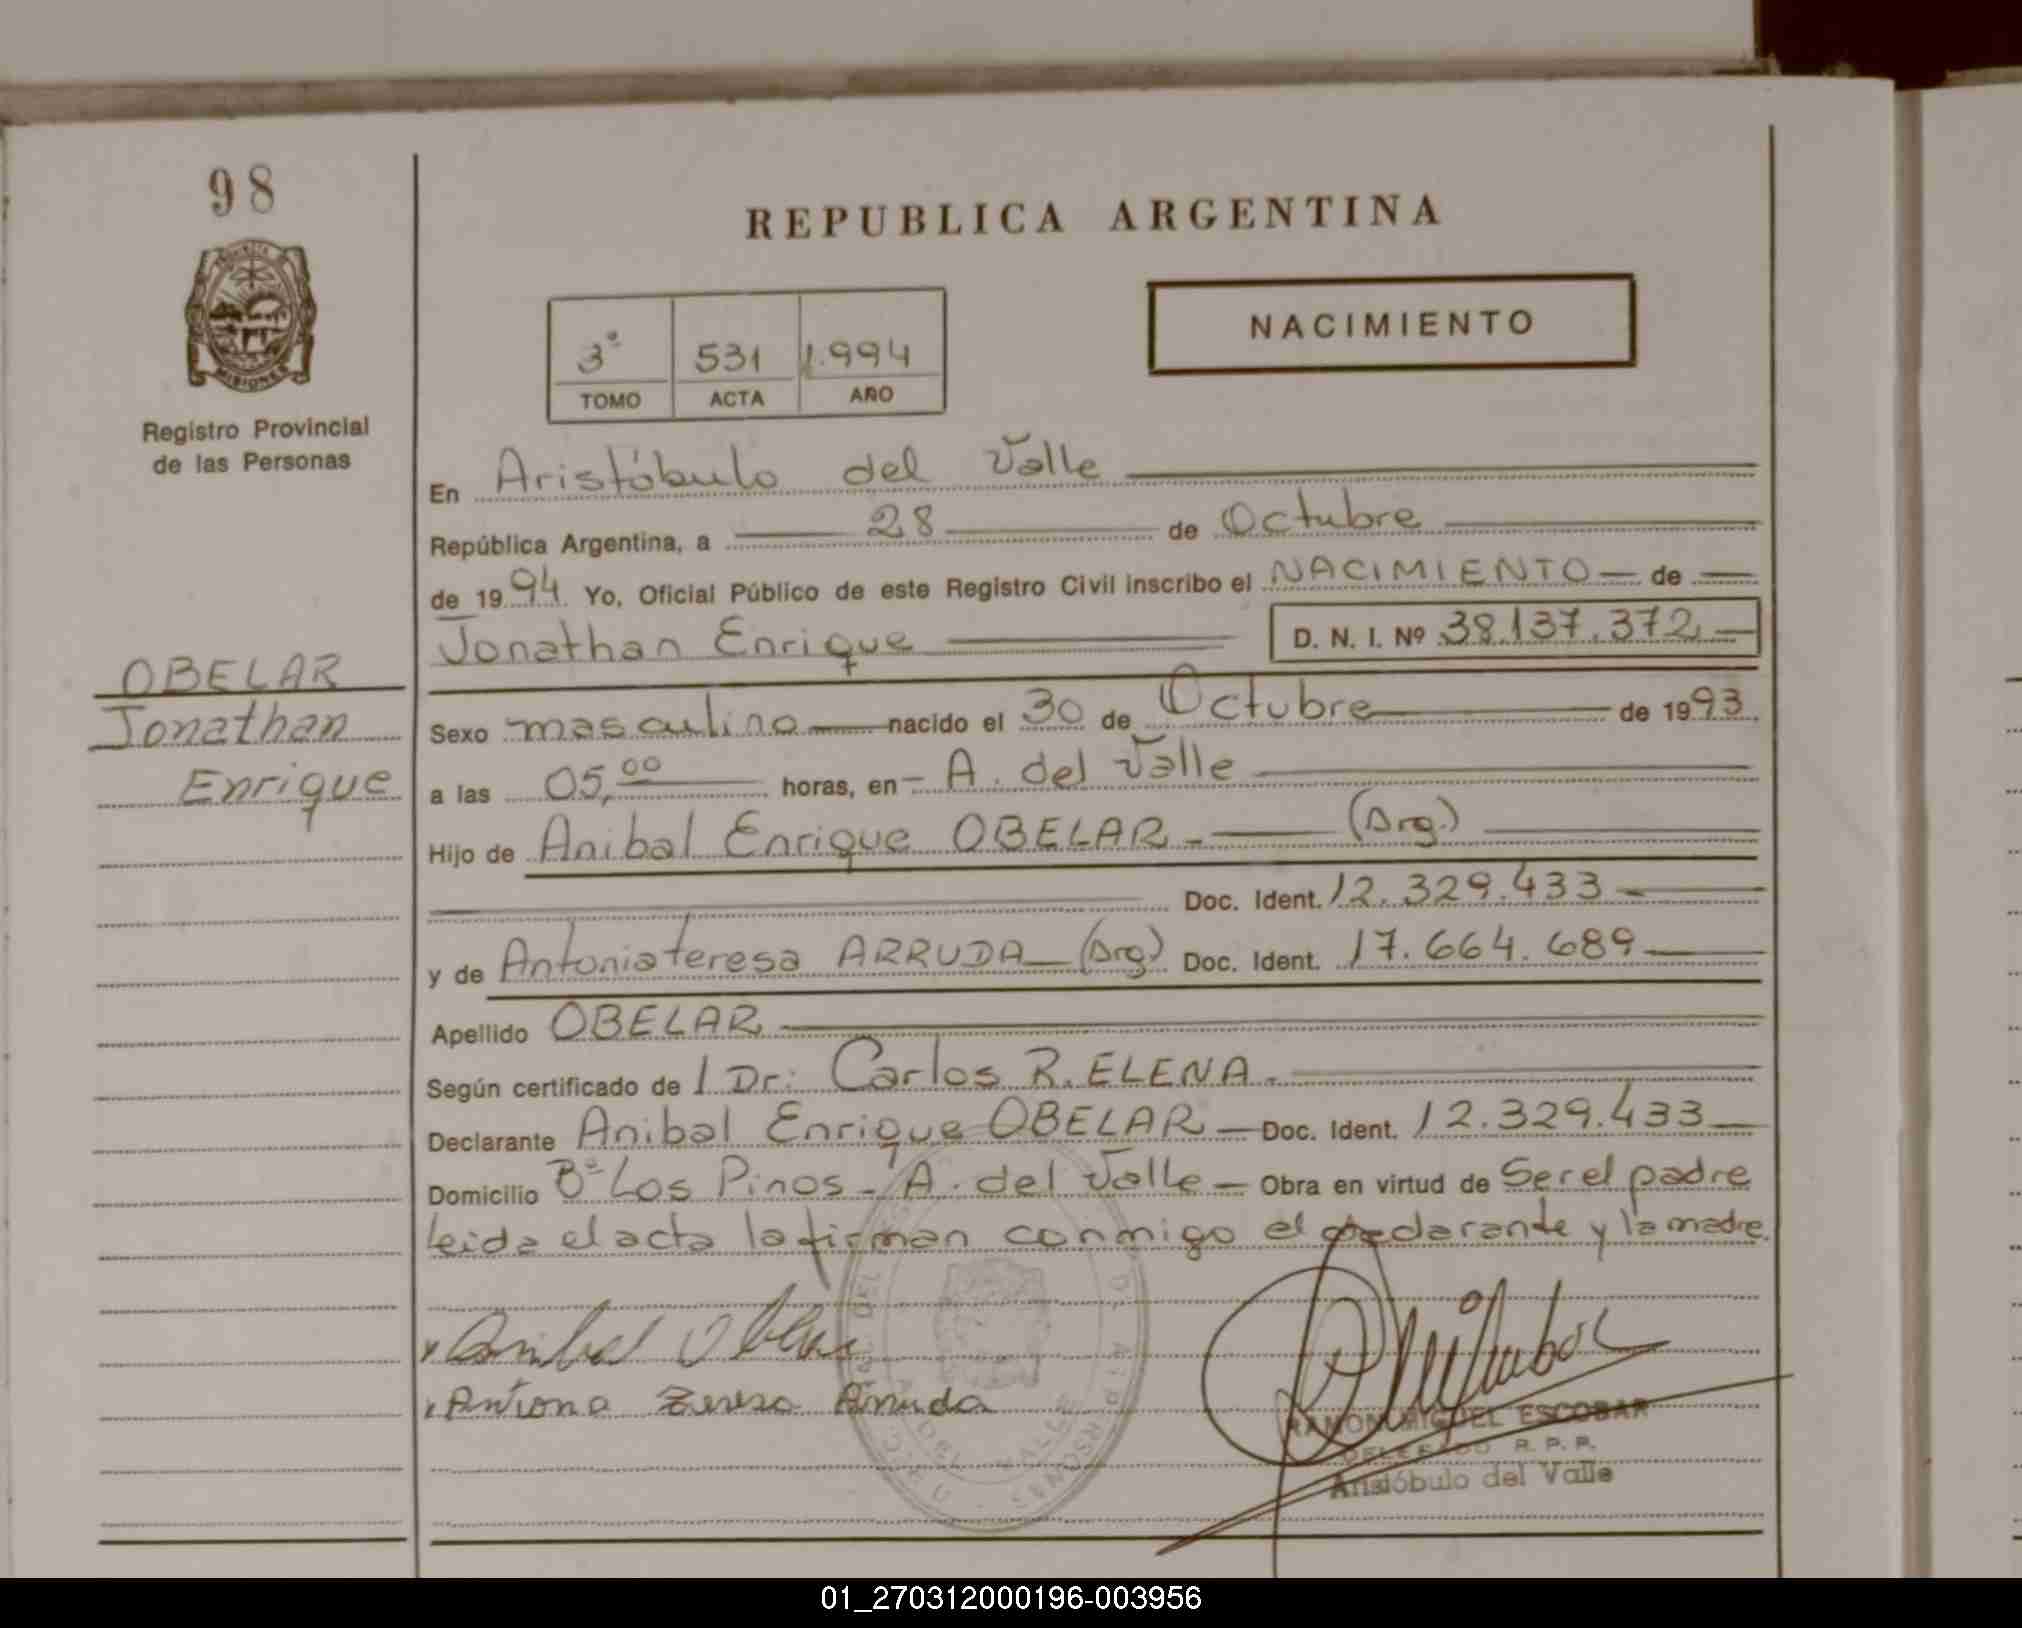 98
REPUBLICA ARGENTINA
MISIONES
Registro Provincial
de las Personas
3º 531 1.994
TOMO ACTA AÑO
NACIMIENTO
En Aristóbulo del Valle
República Argentina, a 28 de Octubre
de 1994 Yo, Oficial Público de este Registro Civil inscribo el NACIMIENTO de
Jonathan Enrique D. N. I. Nº 38.137.372
OBELAR
Jonathan
Enrique
Sexo masculino nacido el 30 de Octubre de 1993
a las 05,00 horas, en A. del Valle
Hijo de Anibal Enrique OBELAR (Arg.)
Doc. Ident. 12.329.433
y de Antonia teresa ARRUDA (Arg) Doc. Ident. 17.664.689
Apellido OBELAR
Según certificado de l Dr. Carlos R. ELENA.
Declarante Anibal Enrique OBELAR Doc. Ident. 12.329.433
Domicilio Bº Los Pinos - A. del Valle Obra en virtud de Ser el padre
leida el acta la firman conmigo el declarante y la madre.
Anibal Obelar
Antonia Teresa Arruda
RAMON MIGUEL ESCOBAR
DELEGADO R. P. P.
Aristóbulo del Valle
01_270312000196-003956